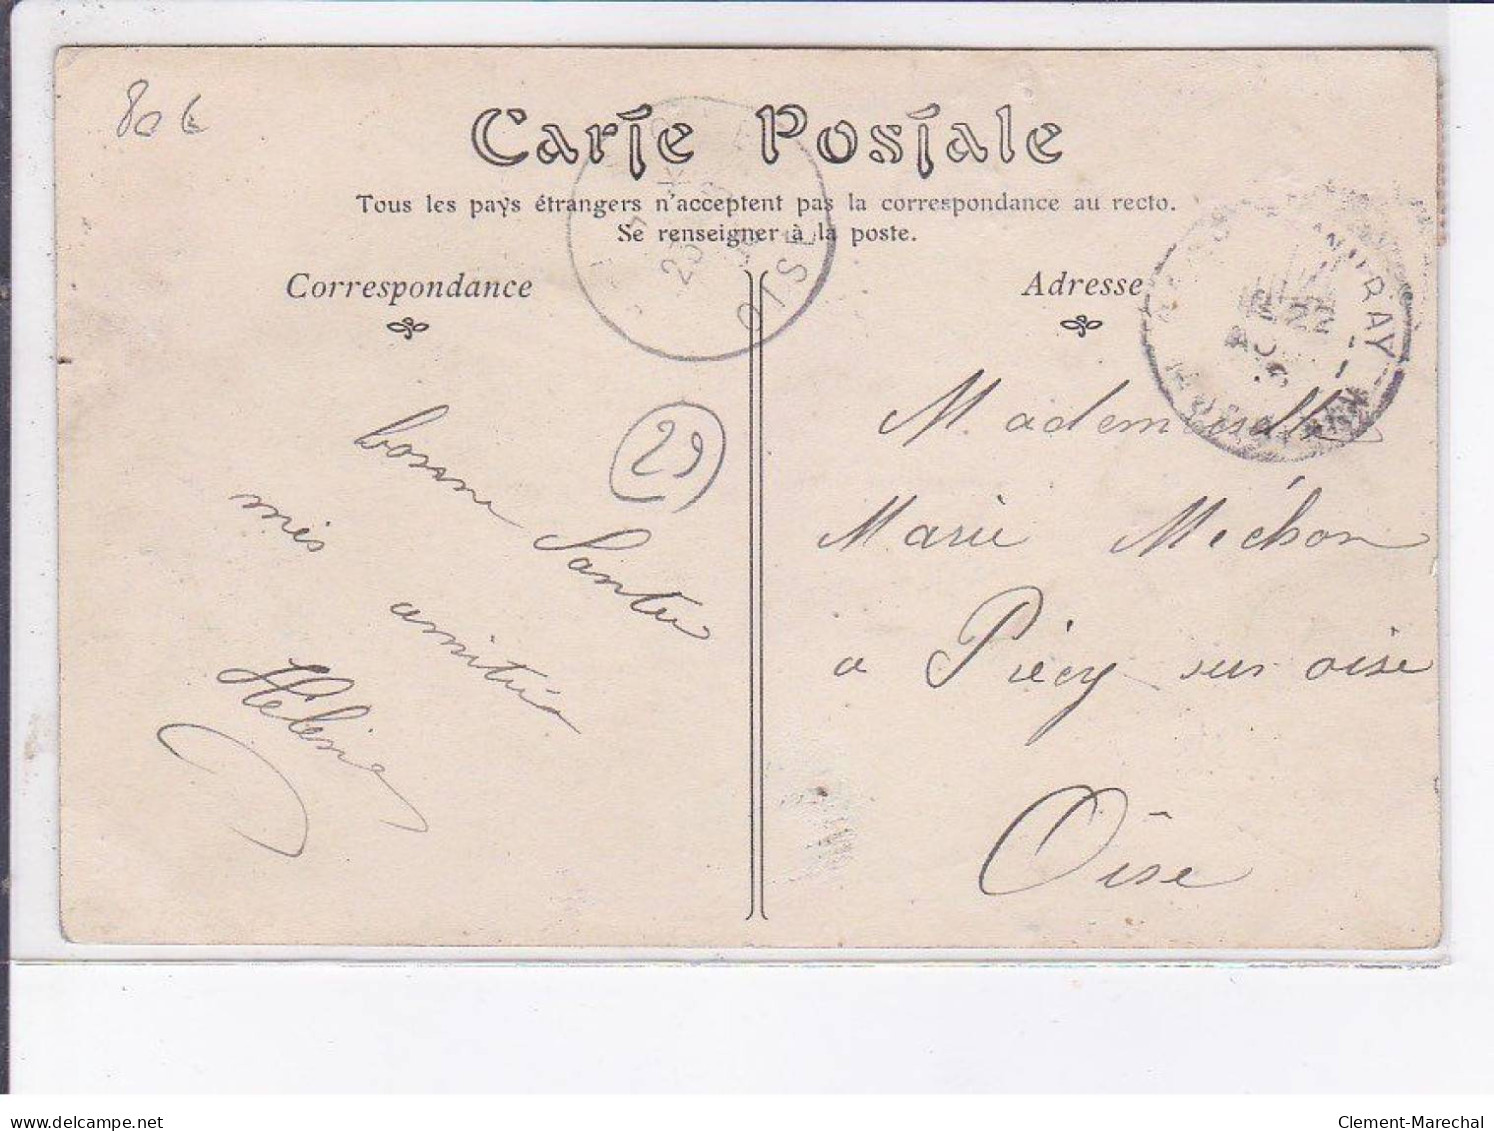 80 €
Carte Postale
Tous les pays étrangers n'acceptent pas la correspondance au recto.
Se renseigner à la poste.
Correspondance
Adresse
OISE
23
22
29
bonne Santée
mes amitiés
Hélène
Mademoiselle
Marie Méchon
a Précy sur oise
Oise
delcampe.net
Clement-Marechal